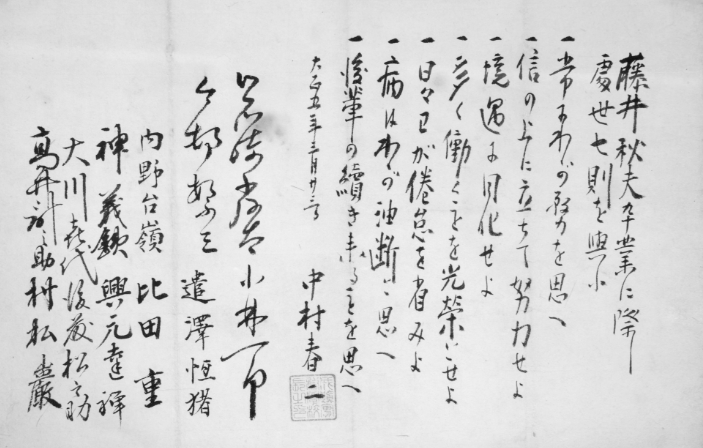 藤井秋夫卒業に際し
處世七則を與ふ
一 常にわが努を思へ
一 信の上に立ちて努力せよ
一 境遇に同化せよ
一 多く働くことを光榮とせよ
一 日々己が倦怠を省みよ
一 病はわが油断と思へ
一 後輩の續き来ることを思へ
大正五年三月廿三日
中村春二
小林一郎
今村繁三
遣澤恒猪
内野台嶺 比田重
神義鎮 興元達禅
大川喜代 後藤松之助
高井 之助 村松巌